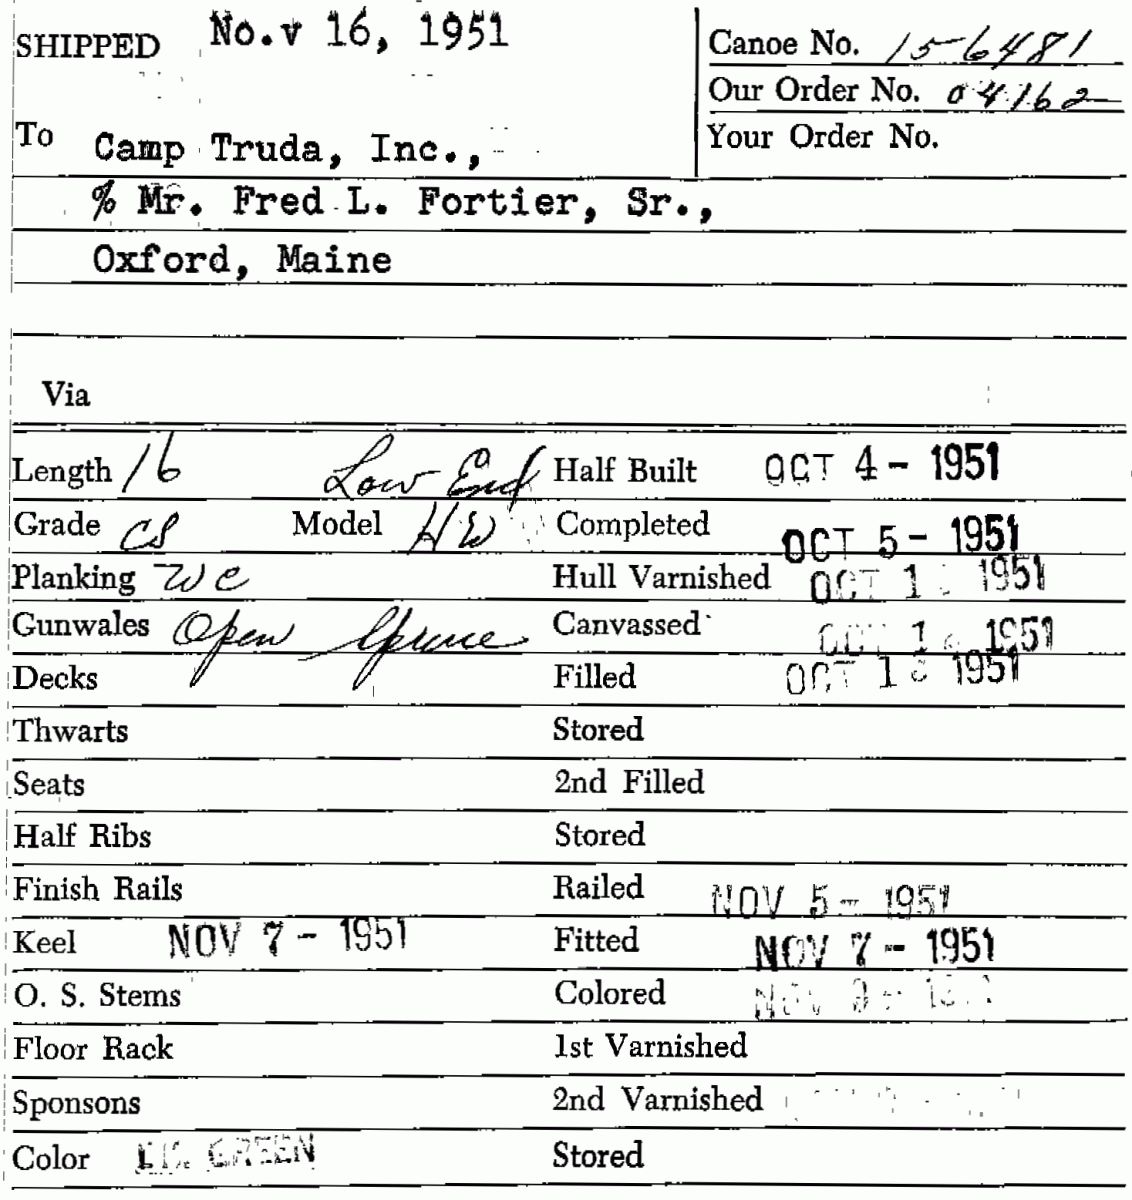 SHIPPED No.v 16, 1951
Canoe No. 156481
Our Order No. 04162
Your Order No.
To Camp Truda, Inc.,
% Mr. Fred L. Fortier, Sr.,
Oxford, Maine
Via
Length 16 Low End Half Built OCT 4 - 1951
Grade CS Model HW Completed OCT 5 - 1951
Planking WC Hull Varnished OCT 1951
Gunwales Open Spruce Canvassed OCT 1951
Decks Filled OCT 1951
Thwarts Stored
Seats 2nd Filled
Half Ribs Stored
Finish Rails Railed NOV 5 - 1951
Keel NOV 7 - 1951 Fitted NOV 7 - 1951
O. S. Stems Colored NOV
Floor Rack 1st Varnished
Sponsons 2nd Varnished
Color GREEN Stored